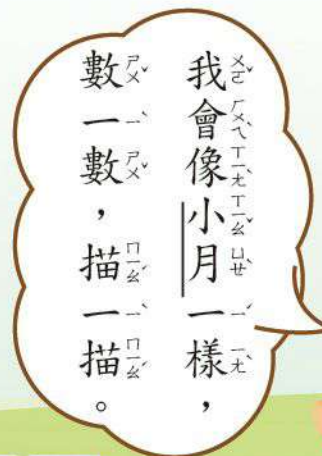 我會像小月一樣，
數一數，描一描。